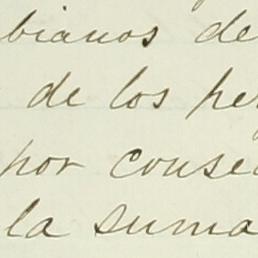 bianos de
de los per
por conse
la suma